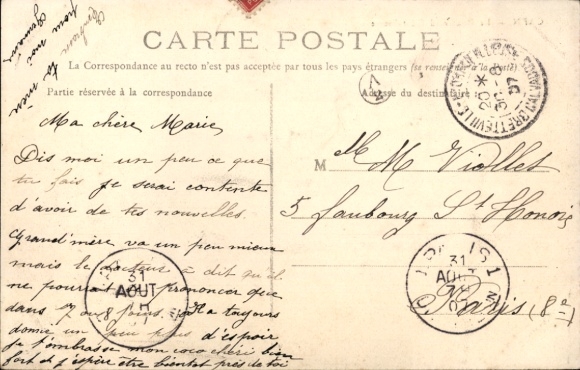 CARTE POSTALE
La Correspondance au recto n'est pas acceptée par tous les pays étrangers (se renseigner à la poste)
Partie réservée à la correspondance
Adresse du destinataire
Ma chère Marie
Dis moi un peu ce que
tu fais je serai contente
d'avoir de tes nouvelles.
Grand'mère va un peu mieux
mais le docteur a dit qu'il
ne pourrait prononcer que
dans 7 ou 8 jours. Il a toujours
donné un peu plus d'espoir
je t'embrasse mon coco chéri bien
fort et j'espère être bientôt près de toi
pour moi
la mien
M
M Viollet
5 faubourg St Honoré
Paris (8e)
BRETTEVILLE
20 *
31 - 8
07
31
AOUT
31
AOUT